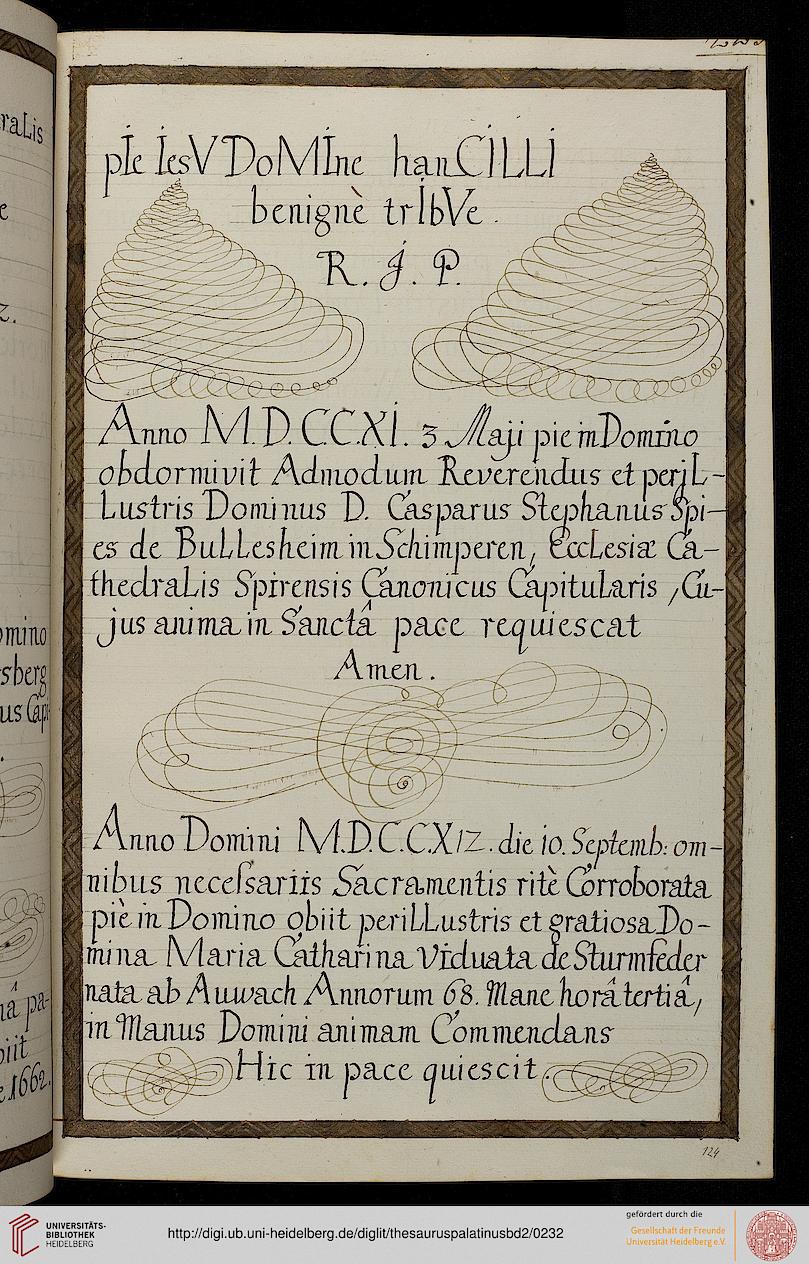 raLis
e
z.
omino
sberg
us Cap
nâ pa-
oiit
e 1662.
pIe IesV DoMIne hanCILLI
benignè trIbVe.
R. J. P.
Anno M.D.CCXI. 3 Maji pie in Domino
obdormivit Admodum Reverendus et periL-
Lustris Dominus D. Casparus Stephanus Spi-
es de BuLLesheim in Schimperen, EccLesiæ Ca-
thedraLis Spirensis Canonicus CapituLaris, Cu-
jus anima in Sanctâ pace requiescat
Amen.
Anno Domini M.D.C.C.X12. die 10. Septemb: om-
nibus neceſsariis Sacramentis ritè Corroborata
piè in Domino obiit periLLustris et gratiosa Do-
mina Maria Catharina Viduata de Sturmfeder
nata ab Auwach Annorum 68. Mane horâ tertiâ,
in Manus Domini animam Commendans
Hic in pace quiescit.
124
UNIVERSITÄTS-
BIBLIOTHEK
HEIDELBERG
http://digi.ub.uni-heidelberg.de/diglit/thesauruspalatinusbd2/0232
gefördert durch die
Gesellschaft der Freunde
Universität Heidelberg e.V.